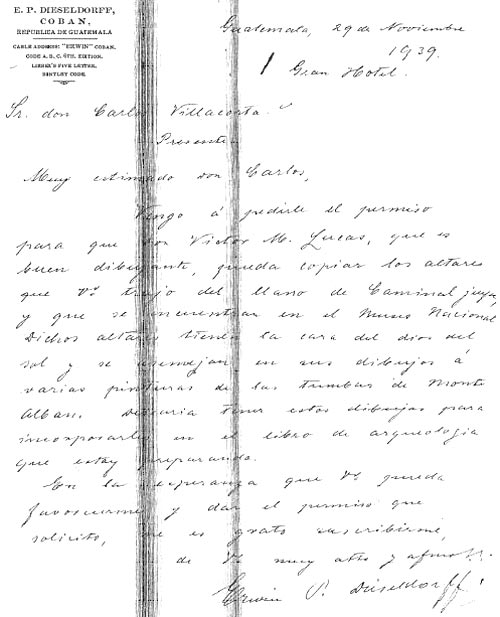 E. P. DIESELDORFF,
COBAN,
REPUBLICA DE GUATEMALA
CABLE ADDRESS: "ERWIN" COBAN.
CODE A. B. C. 5TH. EDITION.
LIEBER'S FIVE LETTER,
BENTLEY CODE.
Guatemala, 29 de Noviembre
1939.
Gran Hotel.
Sr. don Carlos Villacorta.
Presente.
Muy estimado don Carlos,
Vengo á pedirle el permiso
para que don Victor M. Lucas, que es
buen dibujante, pueda copiar los altares
que Vd trajo del llano de Caminal juyu
y que se encuentran en el Museo Nacional
Dichos altares tienen la cara del dios del
sol y se asemejan en sus dibujos á
varias pinturas de las tumbas de Monte
Alban. Desearia tener estos dibujos para
incorporarlos en el libro de arqueologia
que estoy preparando.
En la esperanza que Vd pueda
favorecerme y dar el permiso que
solicito, me es grato suscribirme,
de Vd muy atto y afmo S.
Erwin P. Dieseldorff